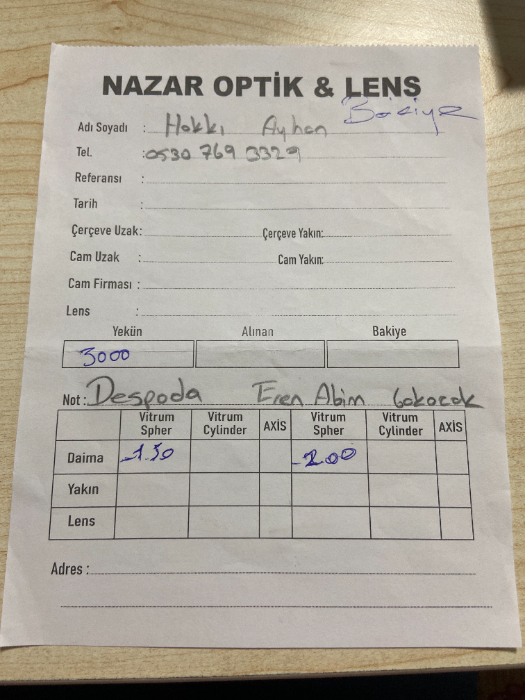 NAZAR OPTİK & LENS
Bakiye
Adı Soyadı : Hakkı Ayhan
Tel. :0530 769 3329
Referansı :
Tarih :
Çerçeve Uzak: Çerçeve Yakın:
Cam Uzak : Cam Yakın:
Cam Firması :
Lens :
Yekün Alınan Bakiye
3000
Not : Despoda Eren Abim bakacak
Vitrum Spher Vitrum Cylinder AXİS Vitrum Spher Vitrum Cylinder AXİS
Daima -1.50 -2.00
Yakın
Lens
Adres :